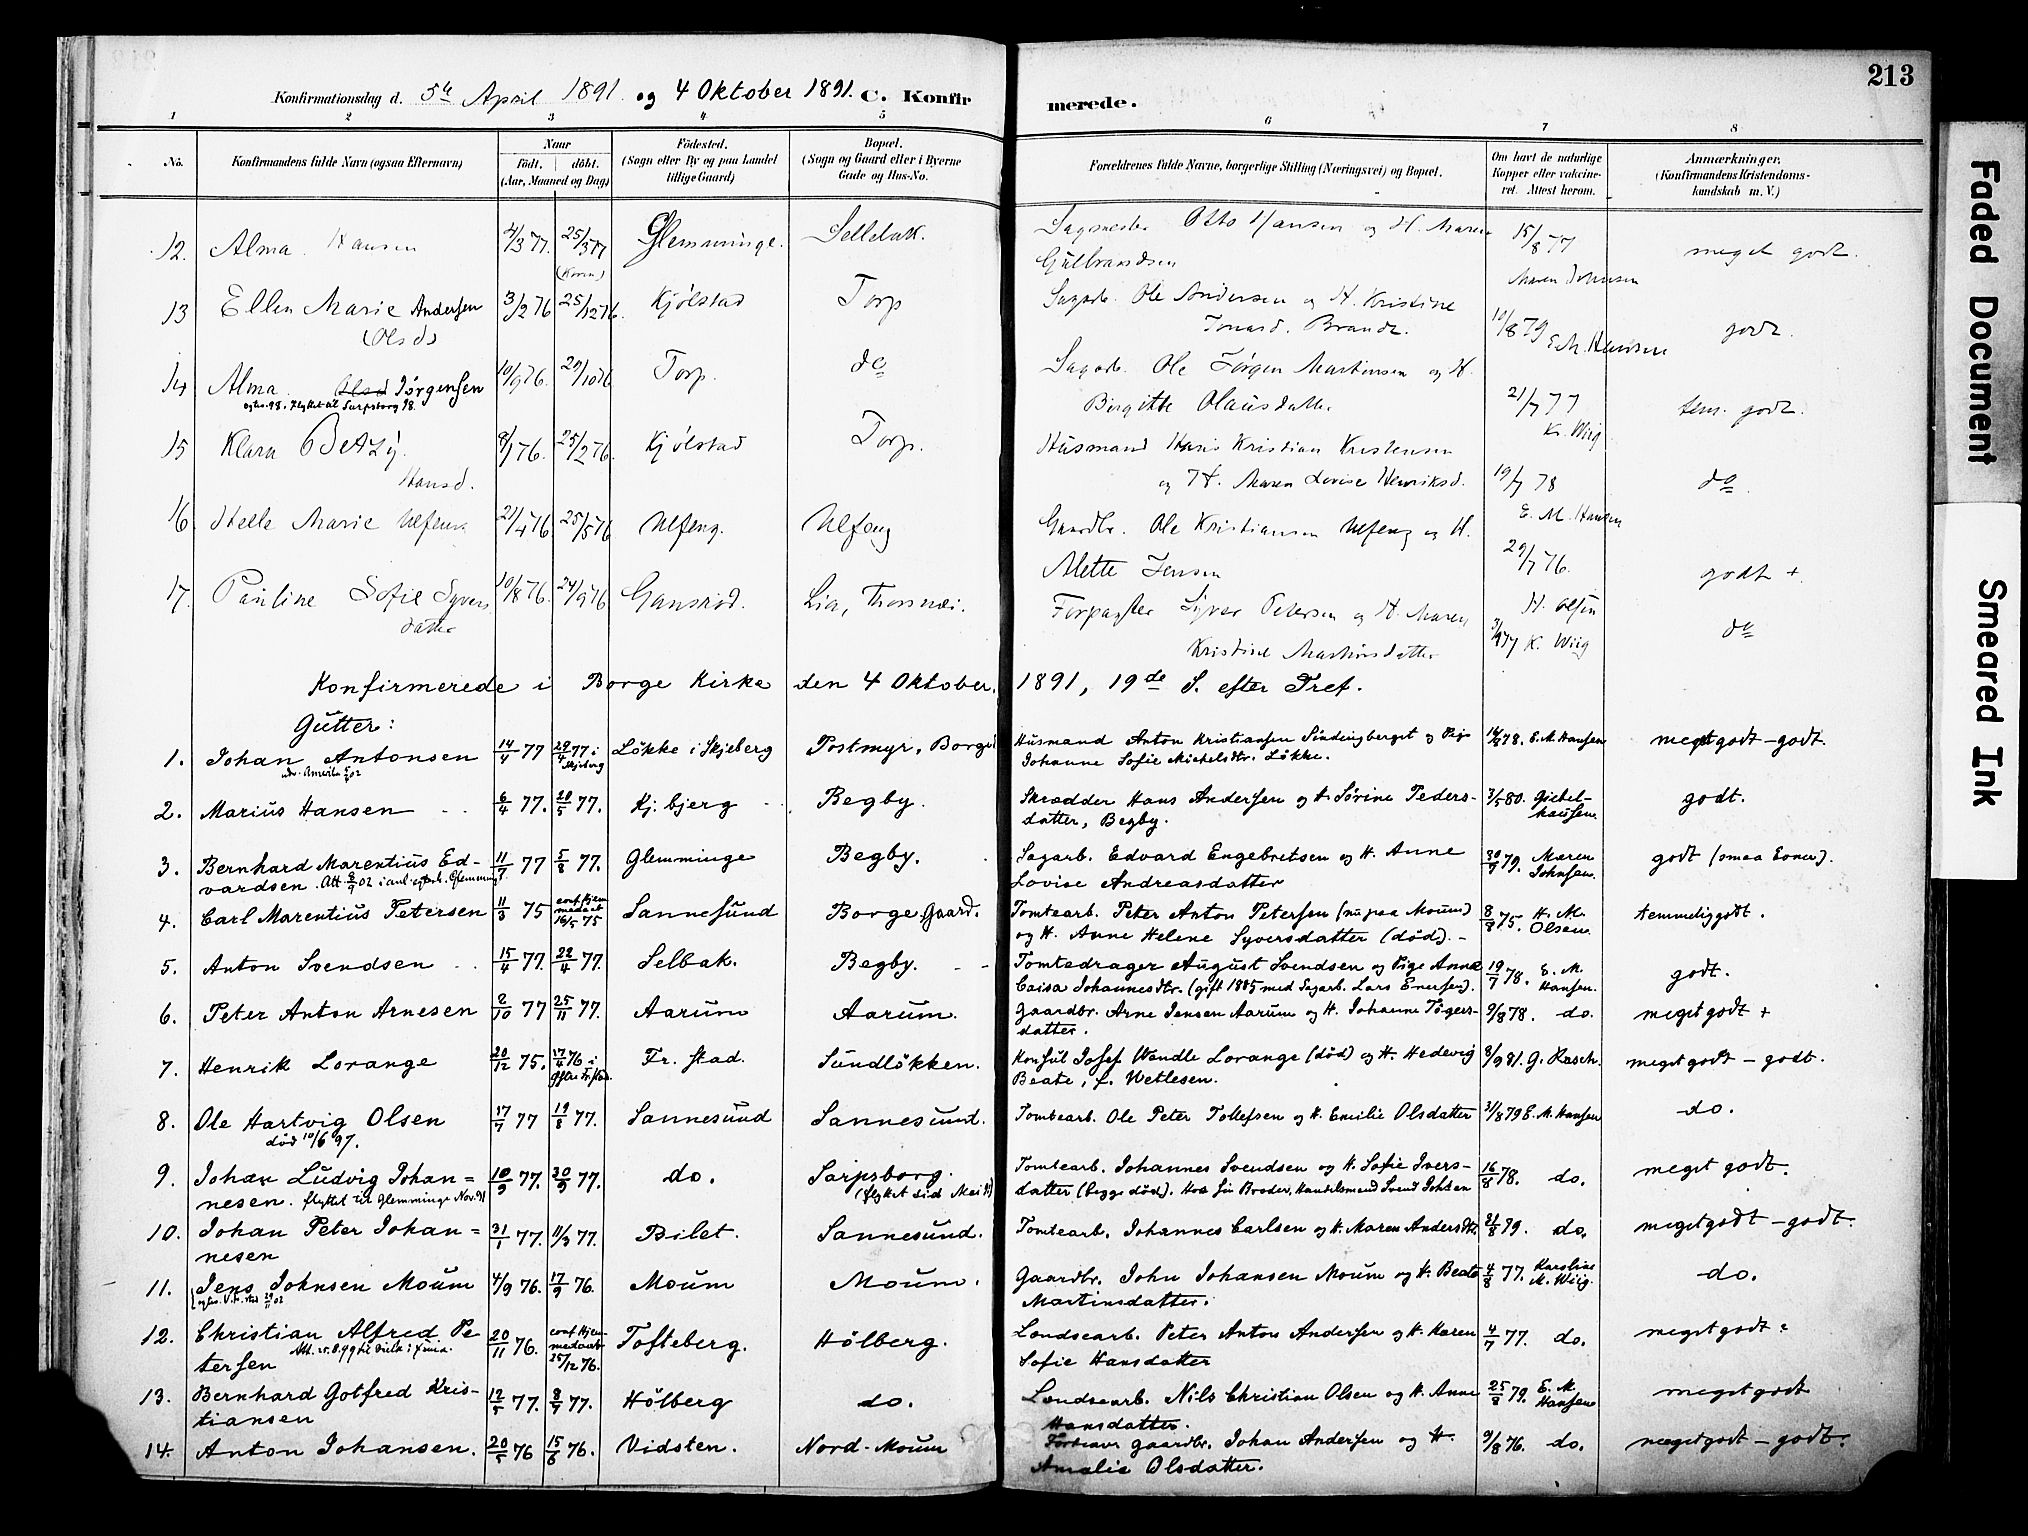 213
Konfirmationsdag d. 5te April 1891 og 4 Oktober 1891. C. Konfirmerede.
1 2 3 4 5 6 7 8
No. Konfirmandens fulde Navn (ogsaa Efternavn) Naar født. døbt. (Aar, Maaned og Dag) Födested. (Sogn eller By og paa Landet tillige Gaard) Bopæl. (Sogn og Gaard eller i Byerne Gade og Hus-No. Forældrenes fulde Navne, borgerlige Stilling (Næringsvei) og Bopæl. Om havt de naturlige Kopper eller vaccineret. Attest herom. Anmærkninger. (Konfirmandens Kristendomskundskab m. V.)
12. Alma Hansen 4/3 77. 25/3 77 Glemminge. Sellebak. Sagmester Otto Hansen og H. Maren 15/8 77 meget godt.
Gulbrandsen Maren Johnsen
13 Ellen Marie Andersen 3/2 76 25/12 76. Kjølstad Torp Sagarb. Ole Andersen og H. Kristine 10/8 79 godt.
(Olsd) Brandt. E. M. Hansen
14 Alma Olsd Jörgensen 10/9 76. 29/10 76 Torp. do Sagarb. Ole Jørgen Martinsen og H. 21/7 77 tem. godt.
flyttet til Sarpsborg 98. Birgitte Olausdatter K. Wiig
15 Klara Betzy. 8/1 76. 25/2 76. Kjølstad Torp. Husmand Hans Kristian Kristensen 19/7 78 do.
Hansd. og H. Maren Lovise Henriksd. E. M. Hansen
16. Helle Marie Ulfeng 21/4 76 25/5 76 Ulfeng. Ulfeng Gaardbr. Ole Kristiansen Ulfeng og H. 29/7 76. godt +
Alette Jensen H. Olsen
17. Pauline Sofie Syvers 10/8 76. 24/9 76 Gansrød. Lia, Thorsnæs. Forpagter Syver Petersen og H. Maren do
datter Kristine Martinsdatter K. Wiig
Konfirmerede i Borge Kirke den 4 Oktober. 1891, 19de S. efter Tref.
Gutter:
1. Johan Antonsen 14/4 77 29/4 77 i Skjeberg Løkke i Skjeberg Postmyr, Borge Husmand Anton Kristiansen Sindingberget og Pige E. M. Hansen meget godt - godt.
Johanne Sofie Michelsdtr. Løkke.
2. Marius Hansen 6/4 77. 20/5 77. Kj. bjerg Begby. Skrædder Hans Andersen og H. Sørine Peders- 3/5 80. Giebel- godt.
datter, Begby. hausen.
3. Bernhard Marentius Ed- 11/7 77 5/8 77. Glemminge Begby. Sagarb. Edvard Engebretsen og H. Anne 30/9 79. Maren godt (smaa Evner).
vardsen. Lovise Andreasdatter Johnsen.
4. Carl Marentius Petersen 11/3 75 conf. hjemmedøbt 16/5 75 Sannesund Borge Gaard. Tomtearb. Peter Anton Petersen (nu paa Moum) 8/8 75. H. M. temmelig godt.
og H. Anne Helene Syversdatter (død). - Olsen.
5. Anton Svendsen 15/4 77. 22/4 77. Selbak. Begby. Tomtedrager August Svendsen og Pige Anna 19/7 78. E. M. godt.
Caisa Johannesdtr. (gift 1885 med Sagarb. Lars Enersen). Hansen.
6. Peter Anton Arnesen 2/10 77 25/11 77. Aarum Aarum. Gaardbr. Arne Jensen Aarum og H. Johanne Tøgers- 9/8 78. do. meget godt +
datter.
7. Henrik Lorange 20/12 75. 17/4 76 i Fr. stad. Sundløkken. Konsul Josef Wendle Lorange (død) og H. Hedevig 8/9 81. G. Rasch. meget godt - godt.
Beate, f. Wetlesen.
8. Ole Hartvig Olsen 17/7 77 19/8 77. Sannesund Sannesund. Tomtearb. Ole Peter Tollefsen og H. Emilie Olsdatter 31/8 79 E. M. Hansen do.
død 10/6 97.
9. Johan Ludvig Johan= 10/9 77. 30/9 77. do. Sarpsborg. Tomtearb. Johannes Svendsen og H. Sofie Ivers- 16/8 78. do. meget godt.
nesen. flyttet til Glemminge Nov. 91 datter (begge død). Hos sin Broder, Handelsmand Svend Johsen
10. Johan Peter Johan= 31/1 77. 11/3 77. Bilet. Sannesund. Tomtearb. Johannes Carlsen og H. Maren Andersdtr. 21/8 79. do. meget godt - godt.
nesen
11. Jens Johnsen Moum 4/9 76. 17/9 76. Moum Moum. Gaardbr. John Johansen Moum og H. Beate 4/8 77. Karoline do.
Martinsdatter. M. Wiig.
12. Christian Alfred Pe 20/11 76. conf. hjemmedøbt 25/12 76. Tofteberg. Hölberg. Landsearb. Peter Anton Andersen og H. Karen 4/7 77. do. meget godt
tersen Sofie Hansdatter
13. Bernhard Gotfred Kris- 12/5 77. 8/7 77. Hölberg do. Landsearb. Nils Christian Olsen og H. Anne 25/8 79. E. M. meget godt
tiansen Hansdatter. Hansen
14. Anton Johansen. 20/5 76 15/6 76. Vidsten. Nord-Moum gaardbr. Johan Andersen og H. 9/8 76. do. meget godt - godt.
Amalie Olsdatter.
Faded Document
Smeared Ink